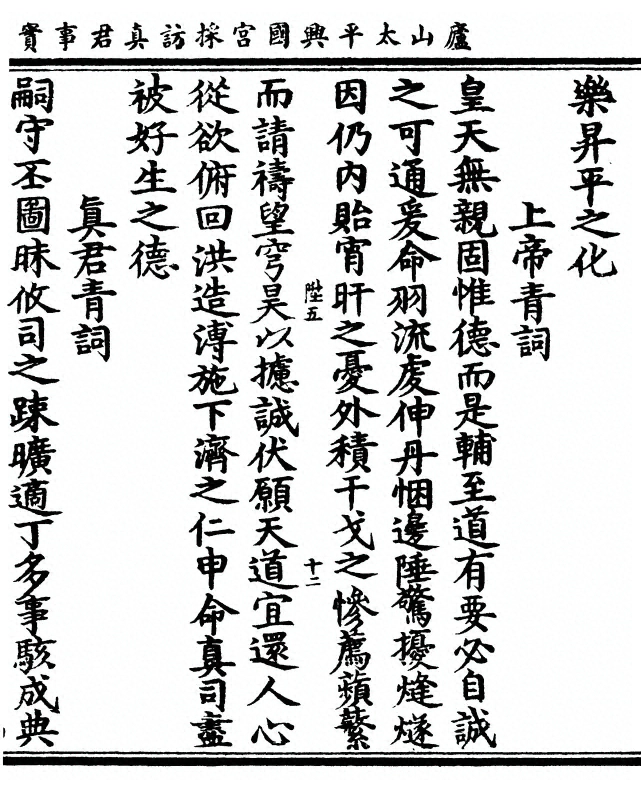 廬山太平興國宮採訪真君事實
樂昇平之化
上帝青詞
皇天無親固惟德而是輔至道有要必自誠
之可通爰命羽流虔伸丹悃邊陲驚擾烽燧
因仍内貽宵旰之憂外積干戈之慘薦蘋蘩
陞五
十二
而請禱望穹昊以攄誠伏願天道宜還人心
從欲俯回洪造溥施下濟之仁申命真司盡
被好生之德
眞君青詞
嗣守丕圖昧攸司之踈曠適丁多事駭成典